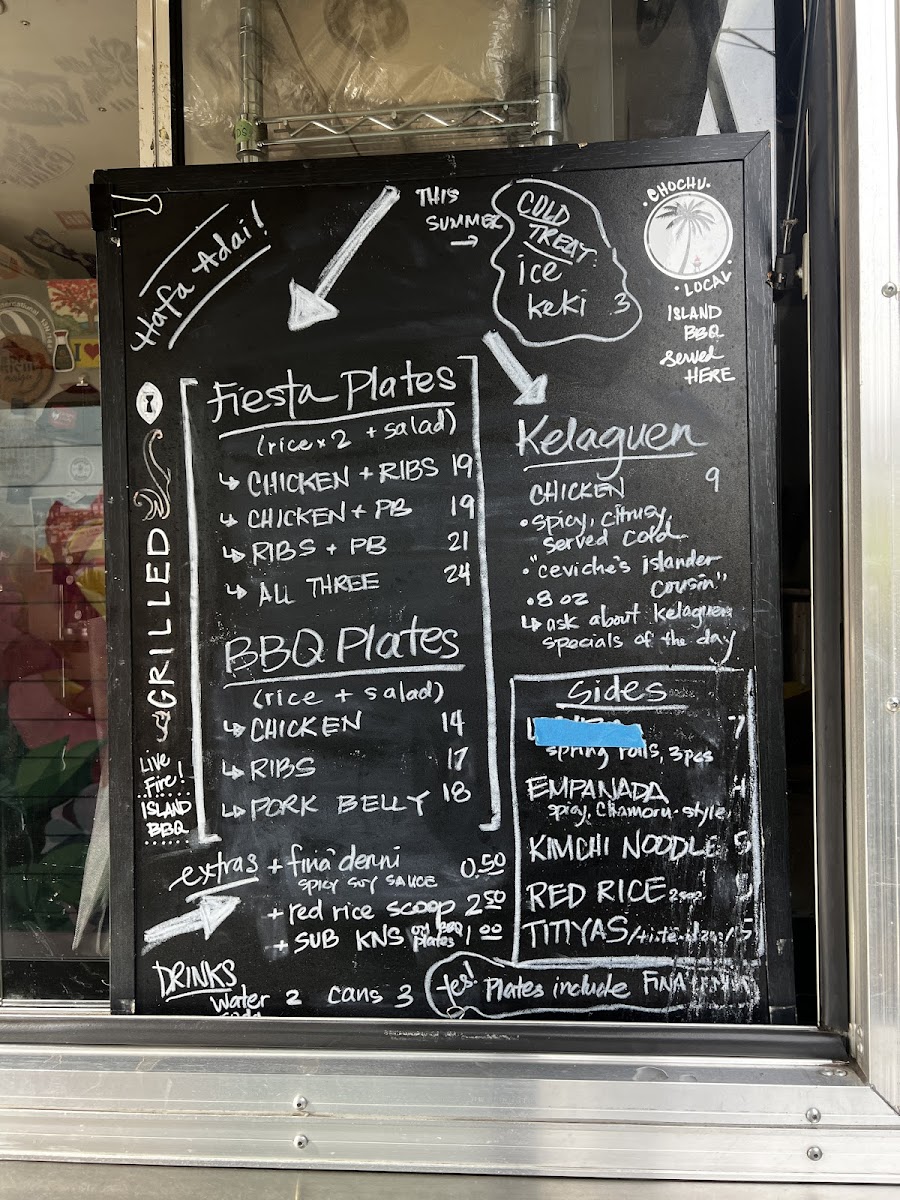 Hafa Adai!
THIS
SUMMER
COLD
TREAT:
ice
keki 3
CHOCHU
LOCAL
ISLAND
BBQ
Served
HERE
GRILLED
Live
Fire!
ISLAND
BBQ
Fiesta Plates
(rice x 2 + salad)
CHICKEN + RIBS 19
CHICKEN + PB 19
RIBS + PB 21
ALL THREE 24
BBQ Plates
(rice + salad)
CHICKEN 14
RIBS 17
PORK BELLY 18
extras + fina'denni 0.50
SPICY SOY SAUCE
+ red rice scoop 2.50
+ SUB KNS on BBQ plates 1.00
DRINKS
Water 2 cans 3
Kelaguen
CHICKEN 9
• spicy, citrusy,
served cold
• "ceviche's islander
cousin"
• 8 oz
ask about kelaguen
specials of the day
Sides
7
spring rolls, 3pcs
EMPANADA 4
spicy, Chamoru-style
KIMCHI NOODLE 5
RED RICE
TITIYAS 5
Yes! Plates include FINA